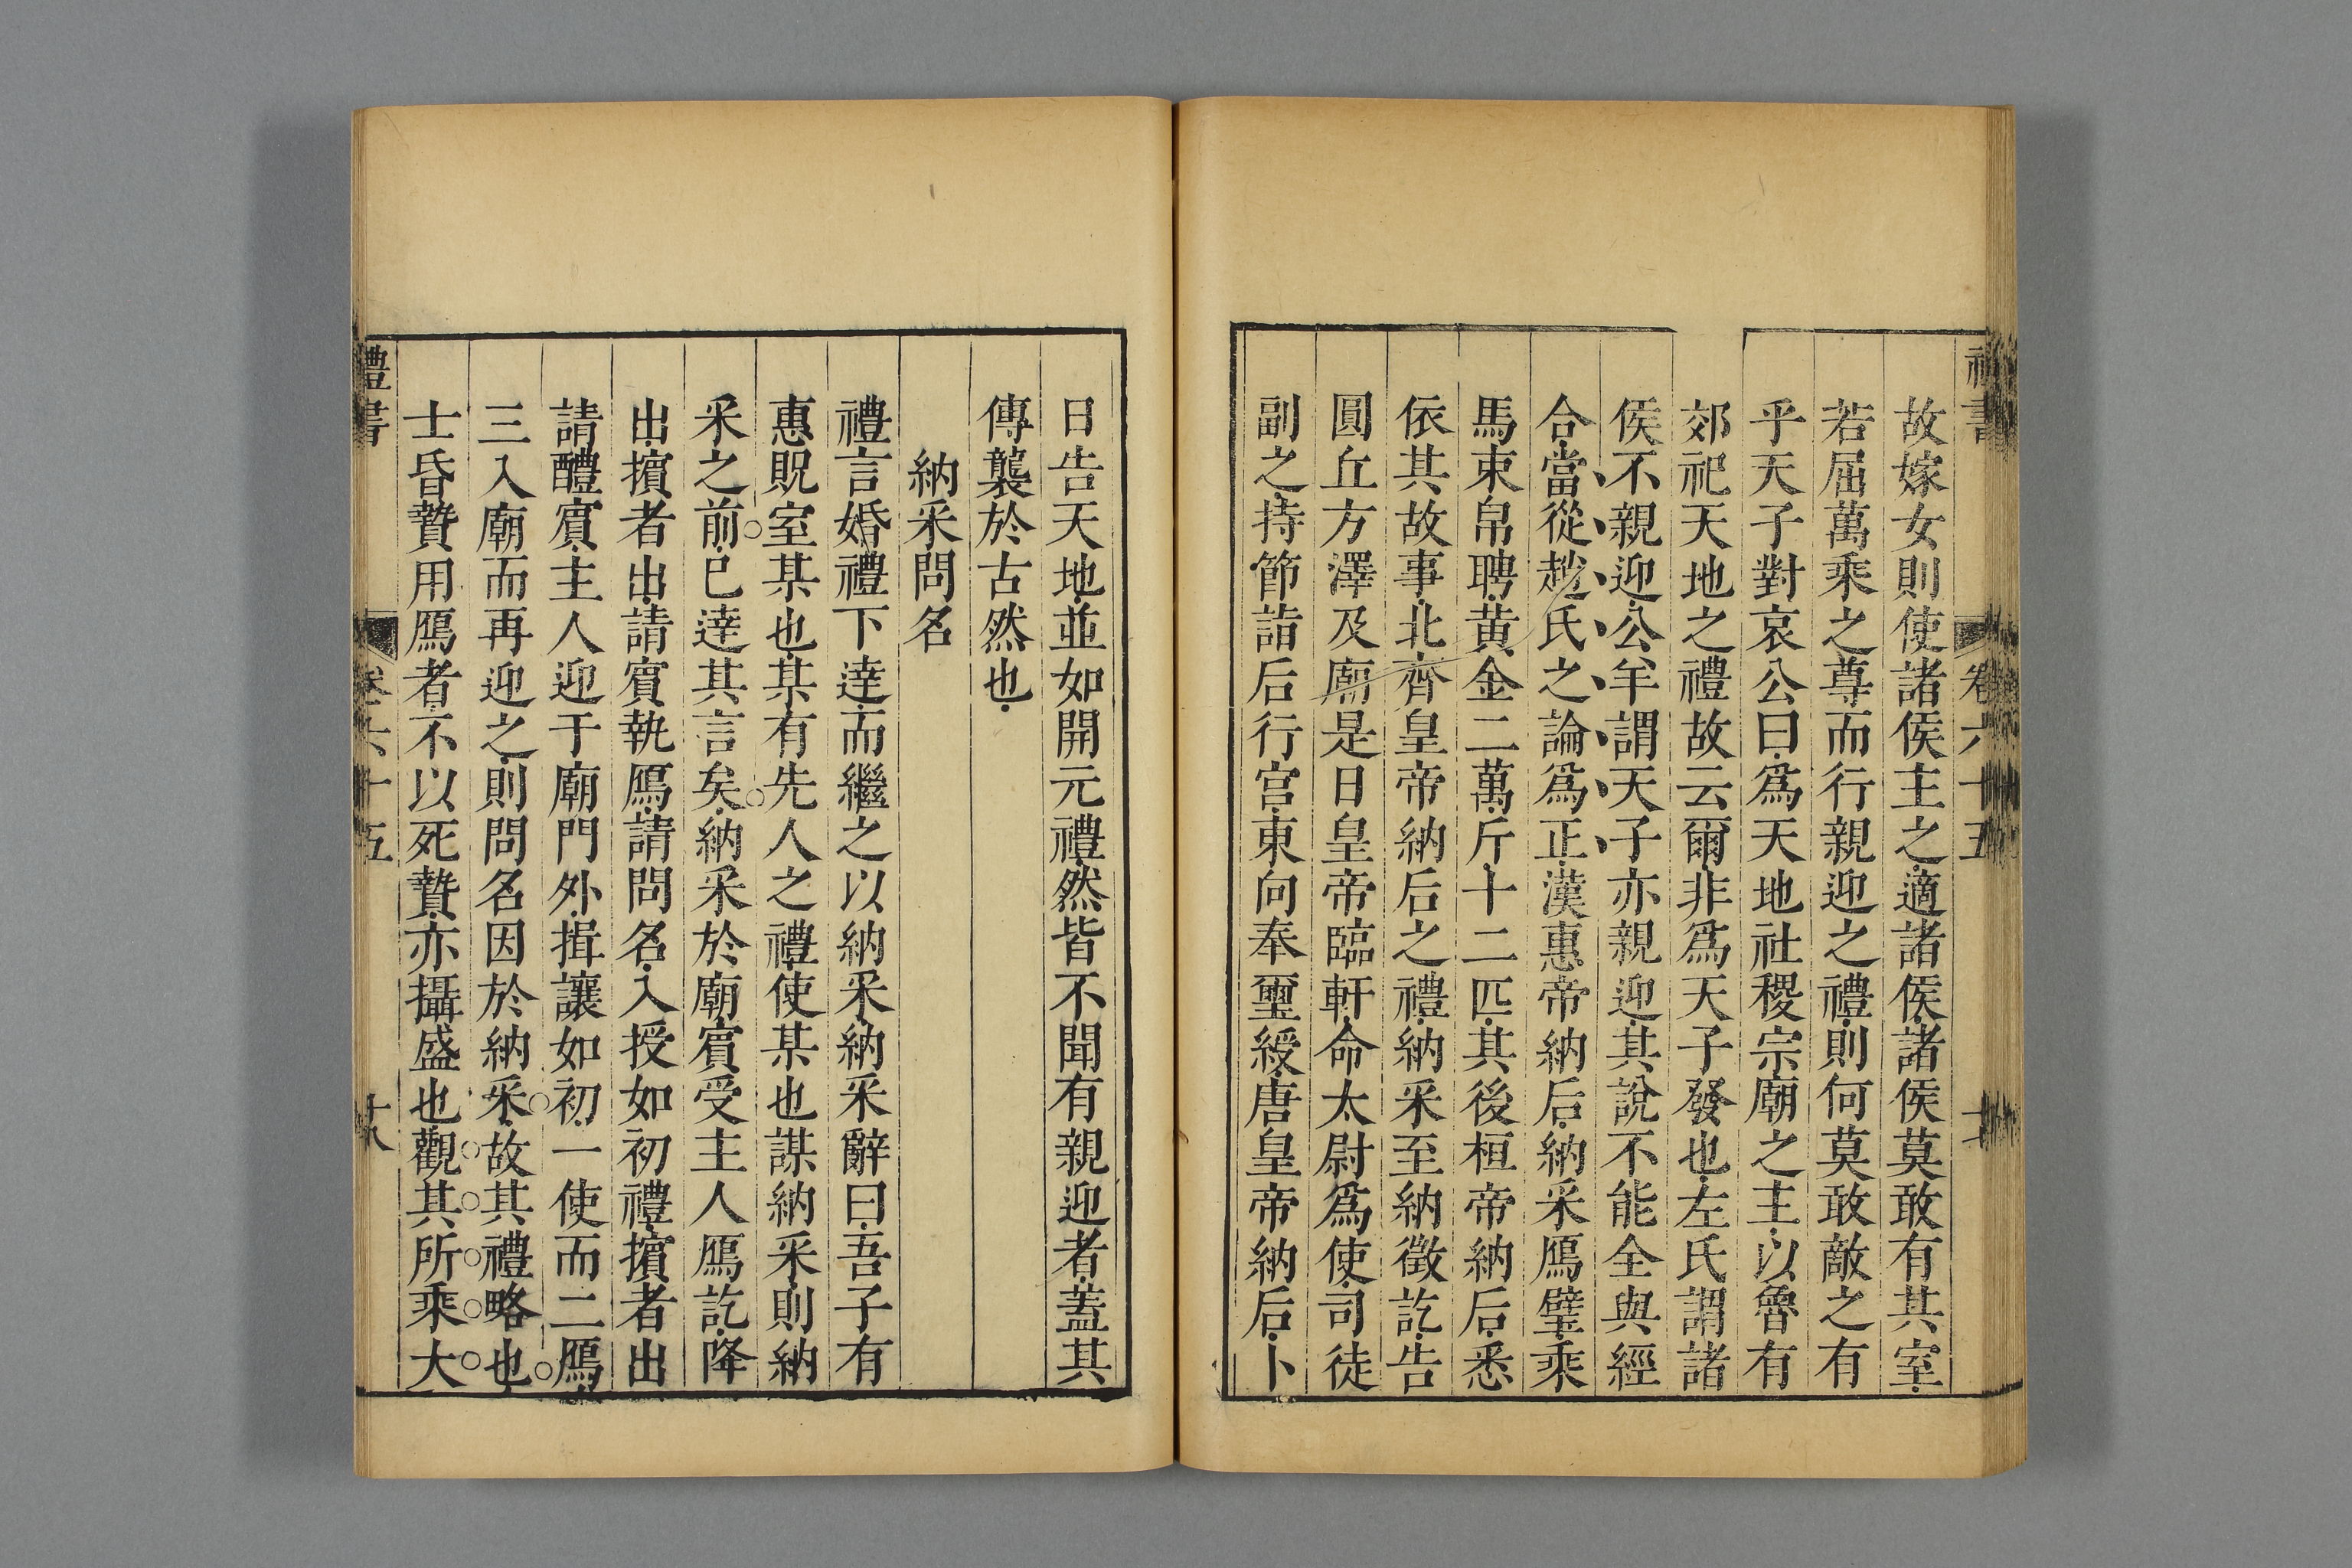 故嫁女則使諸侯主之適諸侯諸侯莫敢有其室
若屈萬乘之尊而行親迎之禮則何莫敢敵之有
乎天子對哀公曰爲天地社稷宗廟之主以魯有
郊祀天地之禮故云爾非爲天子發也左氏謂諸
侯不親迎公羊謂天子亦親迎其說不能全與經
合當從趙氏之論爲正漢惠帝納后納采鴈璧乘
馬束帛聘黃金二萬斤十二匹其後桓帝納后悉
依其故事北齊皇帝納后之禮納采至納徵訖告
圓丘方澤及廟是日皇帝臨軒命太尉爲使司徒
副之持節詣后行宮東向奉璽綬唐皇帝納后卜
日告天地並如開元禮然皆不聞有親迎者蓋其
傳襲於古然也
納采問名
禮言婚禮下達而繼之以納采納采辭曰吾子有
惠貺室某也某有先人之禮使某也謀納采則納
采之前已達其言矣納采於廟賓受主人鴈訖降
出擯者出請賓執鴈請問名入授如初禮擯者出
請醴賓主人迎于廟門外揖讓如初一使而二鴈
三入廟而再迎之則問名因於納采故其禮略也
士昏贄用鴈者不以死贄亦攝盛也觀其所乘大
禮書
卷六十五
十八